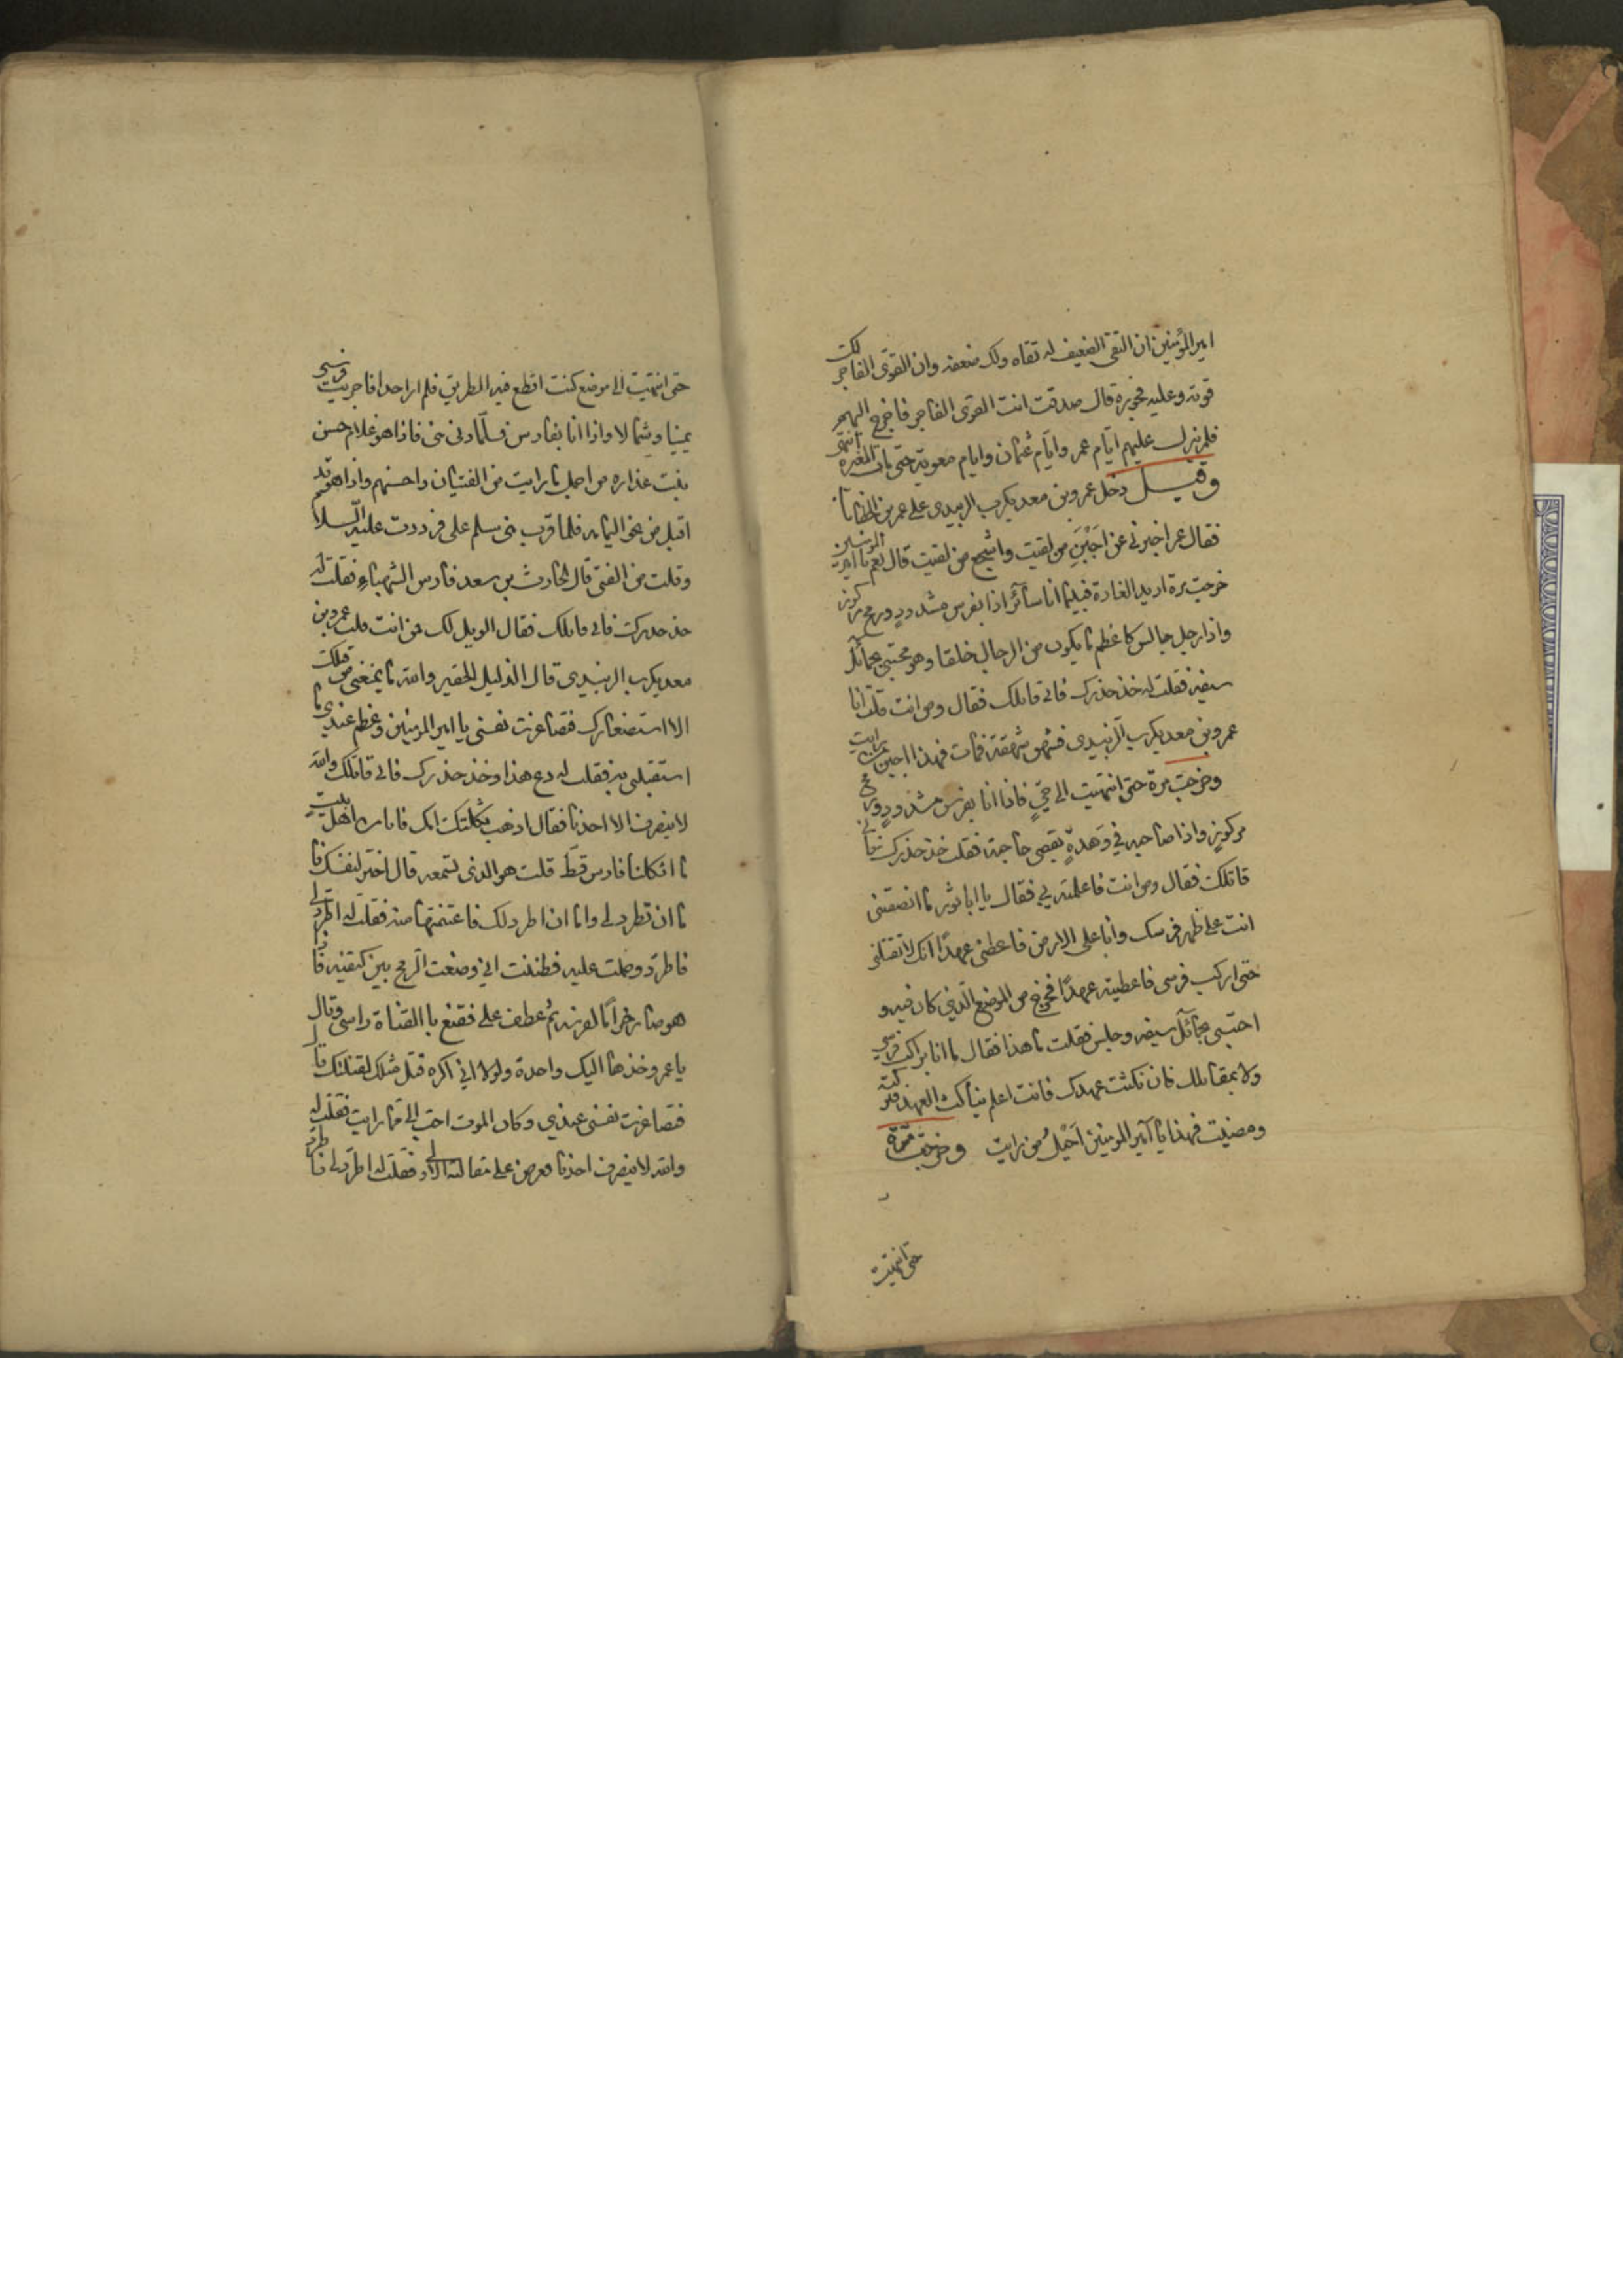 امير المؤمنين ان التقى الضعيف له تقاه ولك ضعفه وان القوى الفاجر لك
قوته وعليه فجوره قال صدقت انت القوى الفاجر فاخرج اليهم
فلم يزل عليهم ايام عمر وايام عثمان وايام معوية حتى مات المغيرة انتهى
وقيل دخل عمرو بن معد يكرب الزبيدى على عمر بن الخطاب
فقال عمر اخبرنى عن اجبن من لقيت واشجع من لقيت قال نعم يا امير المومنين
خرجت مرة اريد الغارة فبينما انا سائر اذا بفرس مشدود ورمح مركوز
واذا رجل جالس كاعظم ما يكون من الرجال خلقا وهو محتبى بحمائل
سيفه فقلت له خذ حذرك فانى قاتلك فقال ومن انت قلت انا
عمرو بن معد يكرب الزبيدى فشهق شهقة فمات فهذا اجبن من رايت
وخرجت مرة حتى انتهيت الى حيّ فاذا انا بفرس مشدود ورمح
مركوز واذا صاحبه في وهدة يقضى حاجته فقلت خذ حذرك فانى
قاتلك فقال ومن انت فاعلمته بي فقال يا ابا ثور ما انصفتنى
انت على ظهر فرسك وانا على الارض فاعطنى عهدًا انك لا تقتلنى
حتى اركب فرسى فاعطيته عهدًا فخرج من الموضع الذى كان فيه و
احتبى بحمائل سيفه وجلس فقلت ما هذا فقال ما انا براكب فرسي
ولا بمقاتلك فان نكثت عهدك فانت اعلم بناكث العهد فتركته
ومضيت فهذا يا امير المومنين احيل من رايت وخرجت مرة
حتى انتهيت
حتى انتهيت الى موضع كنت اقطع فيه الطريق فلم ار احدا فاجريت فرسى
يمينا وشمالا واذا انا بفارس فلما دنى منى فاذا هو غلام حسن
نبت عذاره من اجمل ما رايت من الفتيان واحسنهم واذا هو قد
اقبل من نحو اليمامه فلما قرب منى سلم على فرددت عليه السلام
وقلت من الفتى قال الحارث بن سعد فارس الشهباء فقلت له
خذ حذرك فانى قاتلك فقال الويل لك من انت قلت عمرو بن
معد يكرب الزبيدى قال الذليل الحقير والله ما يمنعنى من قتلك
الا استصغارك فتصاغرت نفسى يا امير المومنين وعظم عندى ما
استقبلنى به فقلت له دع هذا وخذ حذرك فانى قاتلك والله
لا ينصرف الا احدنا فقال اذهب ثكلتك امك فانا من اهل بيت
ما اثكلنا فارس قط قلت هو الذى تسمعه قال اختر لنفسك فا
ما ان تطرد لى واما ان اطرد لك فاغتنمتها منه فقلت له اطرد لى
فاطرد وحملت عليه فظننت انى وضعت الرمح بين كتفيه فاذا
هو صار حزامًا لفرسه ثم عطف على فقنع با القناة راسى وقال
يا عمرو خذها اليك واحدة ولولا انى اكره قتل مثلك لقتلتك قال
فتصاغرت نفسى عندى وكان الموت احب الى مما رايت فقلت له
والله لا ينصرف احدنا فعرض على مقالته الاولى فقلت له اطرد لى فاطرد